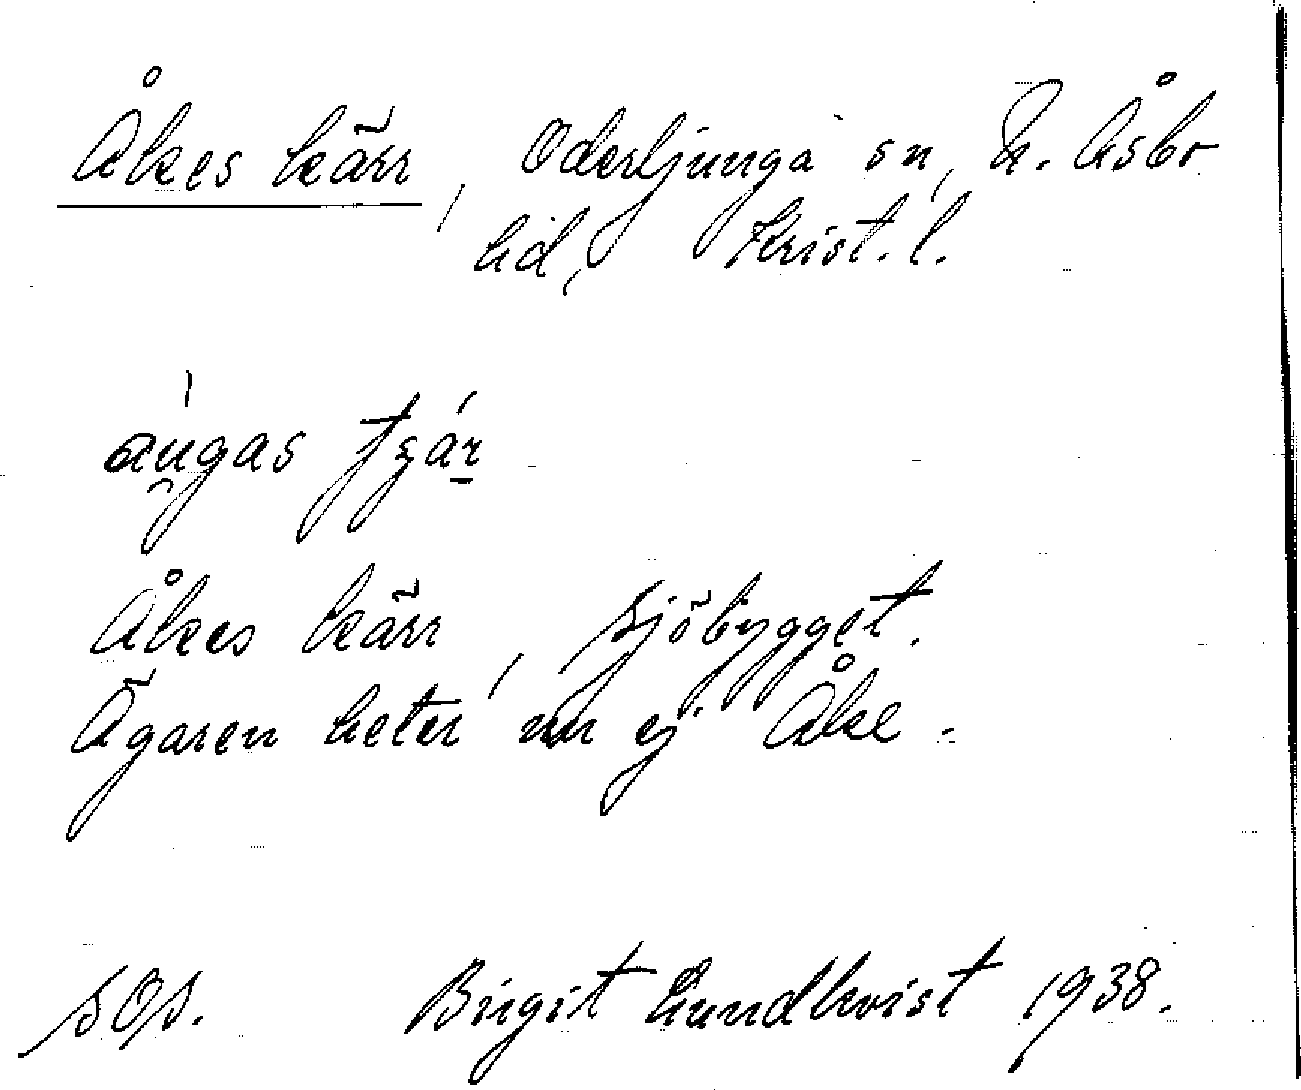 Åkes kärr, Oderljunga sn, N. Åsbo
hd, Krist. l.
Åkes kärr, Sjöbygget.
Ägaren heter nu ej Åke.
SOS. Birgit Lundkvist 1938.